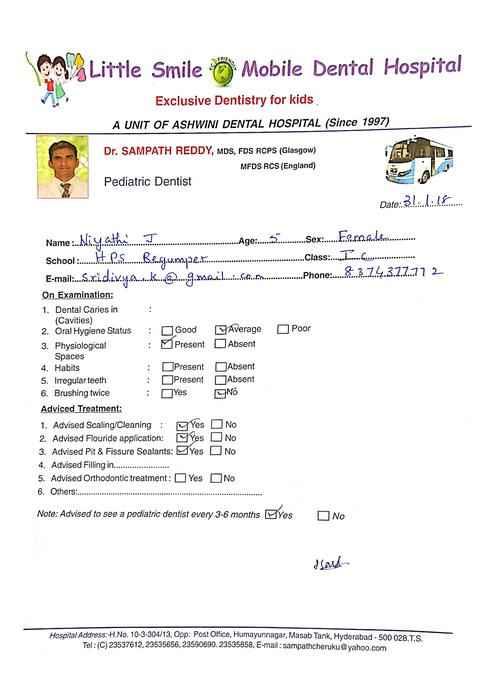 Little Smile Mobile Dental Hospital
Exclusive Dentistry for kids
A UNIT OF ASHWINI DENTAL HOSPITAL (Since 1997)
Dr. SAMPATH REDDY, MDS, FDS RCPS (Glasgow)
MFDS RCS (England)
Pediatric Dentist
Date: 31.1.18
Name: Niyathi J Age: 5 Sex: Female
School: HPS Begumper Class: I C
E-mail: Sridivya.k@gmail.com Phone: 8374377772
On Examination:
1. Dental Caries in :
(Cavities)
2. Oral Hygiene Status : Good Average Poor
3. Physiological : Present Absent
Spaces
4. Habits : Present Absent
5. Irregular teeth : Present Absent
6. Brushing twice : Yes No
Adviced Treatment:
1. Advised Scaling/Cleaning : Yes No
2. Advised Flouride application: Yes No
3. Advised Pit & Fissure Sealants: Yes No
4. Advised Filling in....................
5. Advised Orthodontic treatment : Yes No
6. Others:..........................................................
Note: Advised to see a pediatric dentist every 3-6 months Yes No
Hospital Address:-H.No. 10-3-304/13, Opp: Post Office, Humayunnagar, Masab Tank, Hyderabad - 500 028.T.S.
Tel : (C) 23537612, 23535656, 23590690. 23535658, E-mail : sampathcheruku@yahoo.com